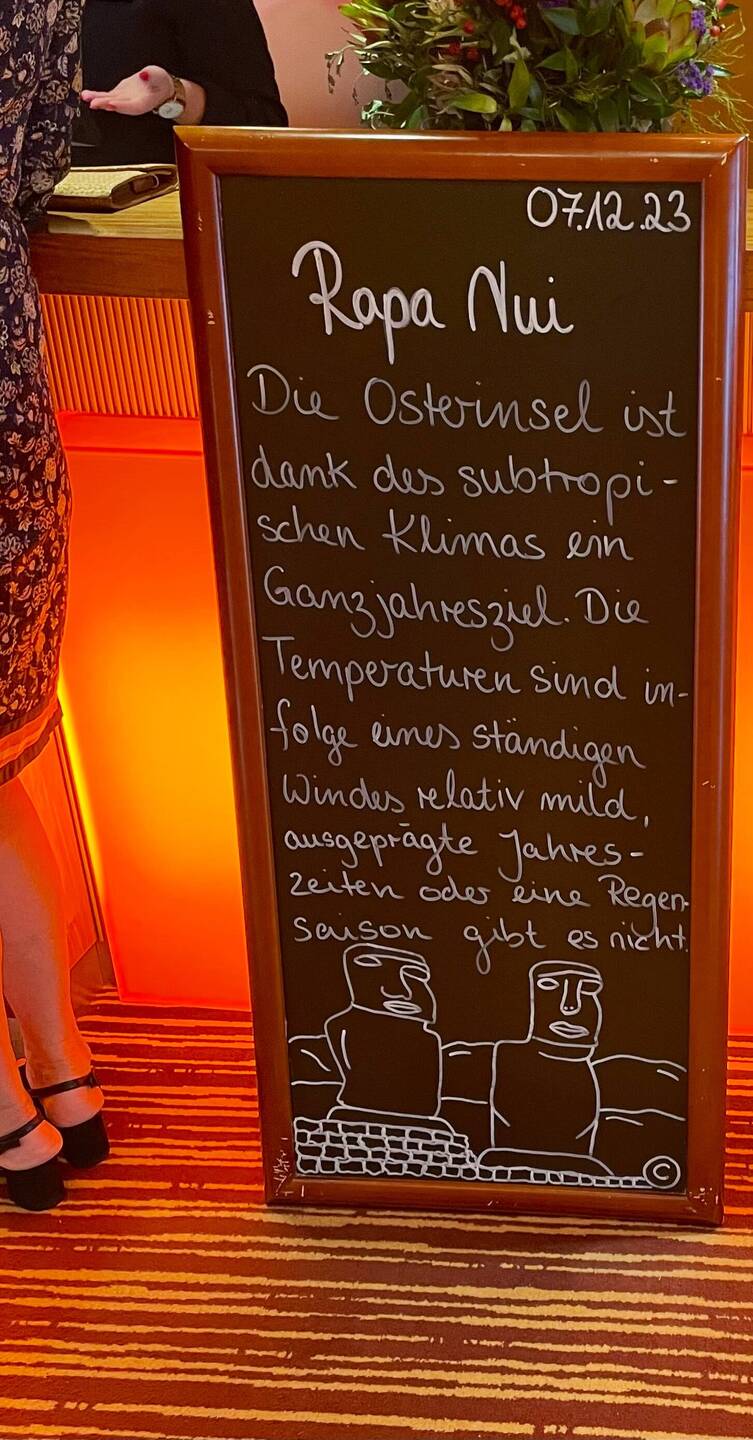 07.12.23
Rapa Nui
Die Osterinsel ist
dank des subtropi-
schen Klimas ein
Ganzjahresziel. Die
Temperaturen sind in-
folge eines ständigen
Windes relativ mild,
ausgeprägte Jahres-
zeiten oder eine Regen-
saison gibt es nicht.
©